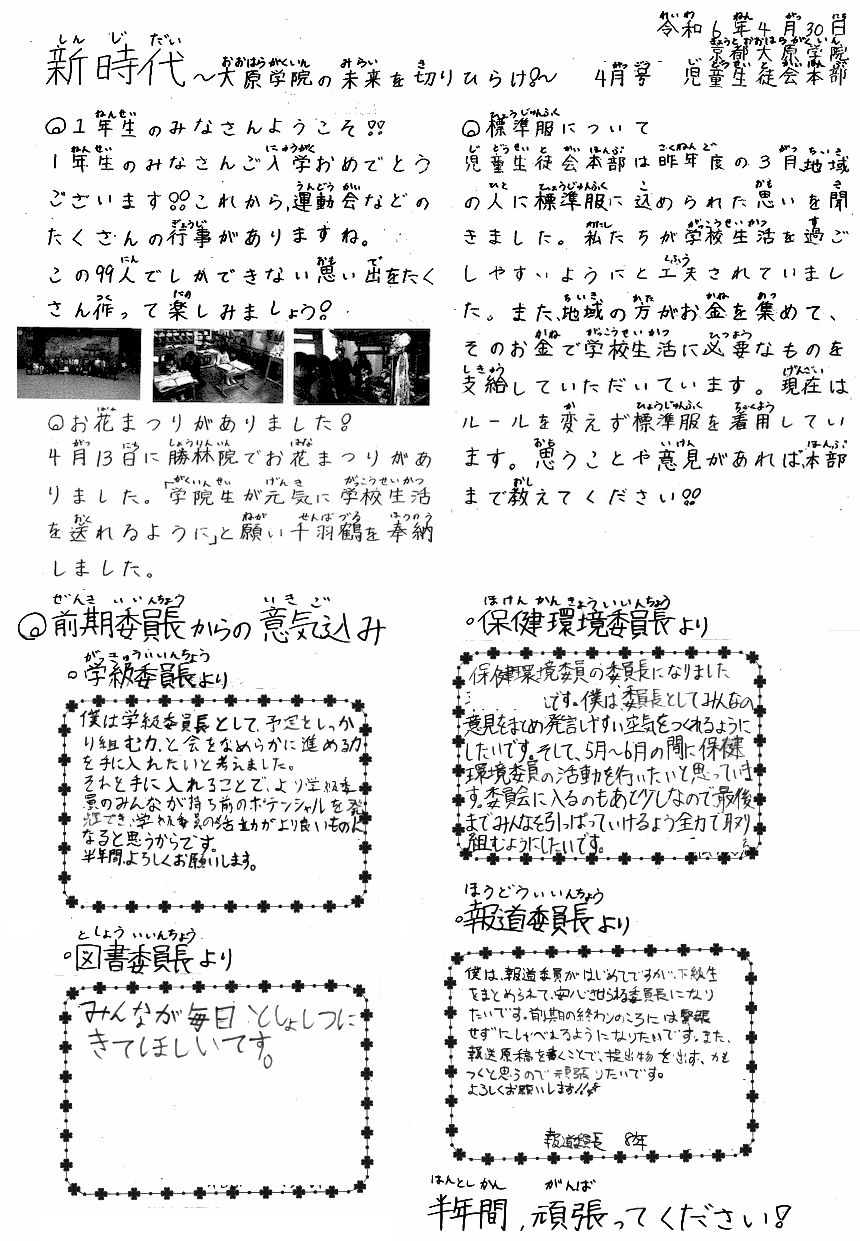 令和6年4月30日
京都大原学院
新時代〜大原学院の未来を切りひらけ!〜 4月号 児童生徒会本部
◎1年生のみなさんようこそ!!
1年生のみなさんご入学おめでとう
ございます!!これから、運動会などの
たくさんの行事がありますね。
この99人でしかできない思い出をたく
さん作って楽しみましょう!
◎お花まつりがありました!
4月13日に勝林院でお花まつりがあ
りました。「学院生が元気に学校生活
を送れるように」と願い千羽鶴を奉納
しました。
◎標準服について
児童生徒会本部は昨年度の3月、地域
の人に標準服に込められた思いを聞
きました。私たちが学校生活を過ご
しやすいようにと工夫されていまし
た。また、地域の方がお金を集めて、
そのお金で学校生活に必要なものを
支給していただいています。現在は
ルールを変えず標準服を着用してい
ます。思うことや意見があれば、本部
まで教えてください!!
◎前期委員長からの意気込み
・学級委員長より
僕は学級委員長として、予定をしっか
り組む力と会をなめらかに進める力
を手に入れたいと考えました。
それを手に入れることで、より学級委
員のみんなが持ち前のポテンシャルを発
揮でき、学級委員の活動がより良いものに
なると思うからです。
半年間よろしくお願いします。
・図書委員長より
みんなが毎日としょしつに
きてほしいです。
・保健環境委員長より
保健環境委員の委員長になりました
です。僕は委員長としてみんなの
意見をまとめ発言しやすい空気をつくれるように
したいです。そして、5月〜6月の間に保健
環境委員の活動を行いたいと思っていま
す。委員会に入るのもあと少しなので最後
までみんなを引っぱっていけるよう全力で取り
組むようにしたいです。
・報道委員長より
僕は、報道委員がはじめてですが、下級生
をまとめられて、安心させられる委員長になり
たいです。前期の終わりのころには緊張
せずにしゃべれるようになりたいです。また、
報送原稿を書くことで、提出物を出す、力も
つくと思うので頑張りたいです。
よろしくお願いします!!
報道委員長 8年
半年間、頑張ってください!